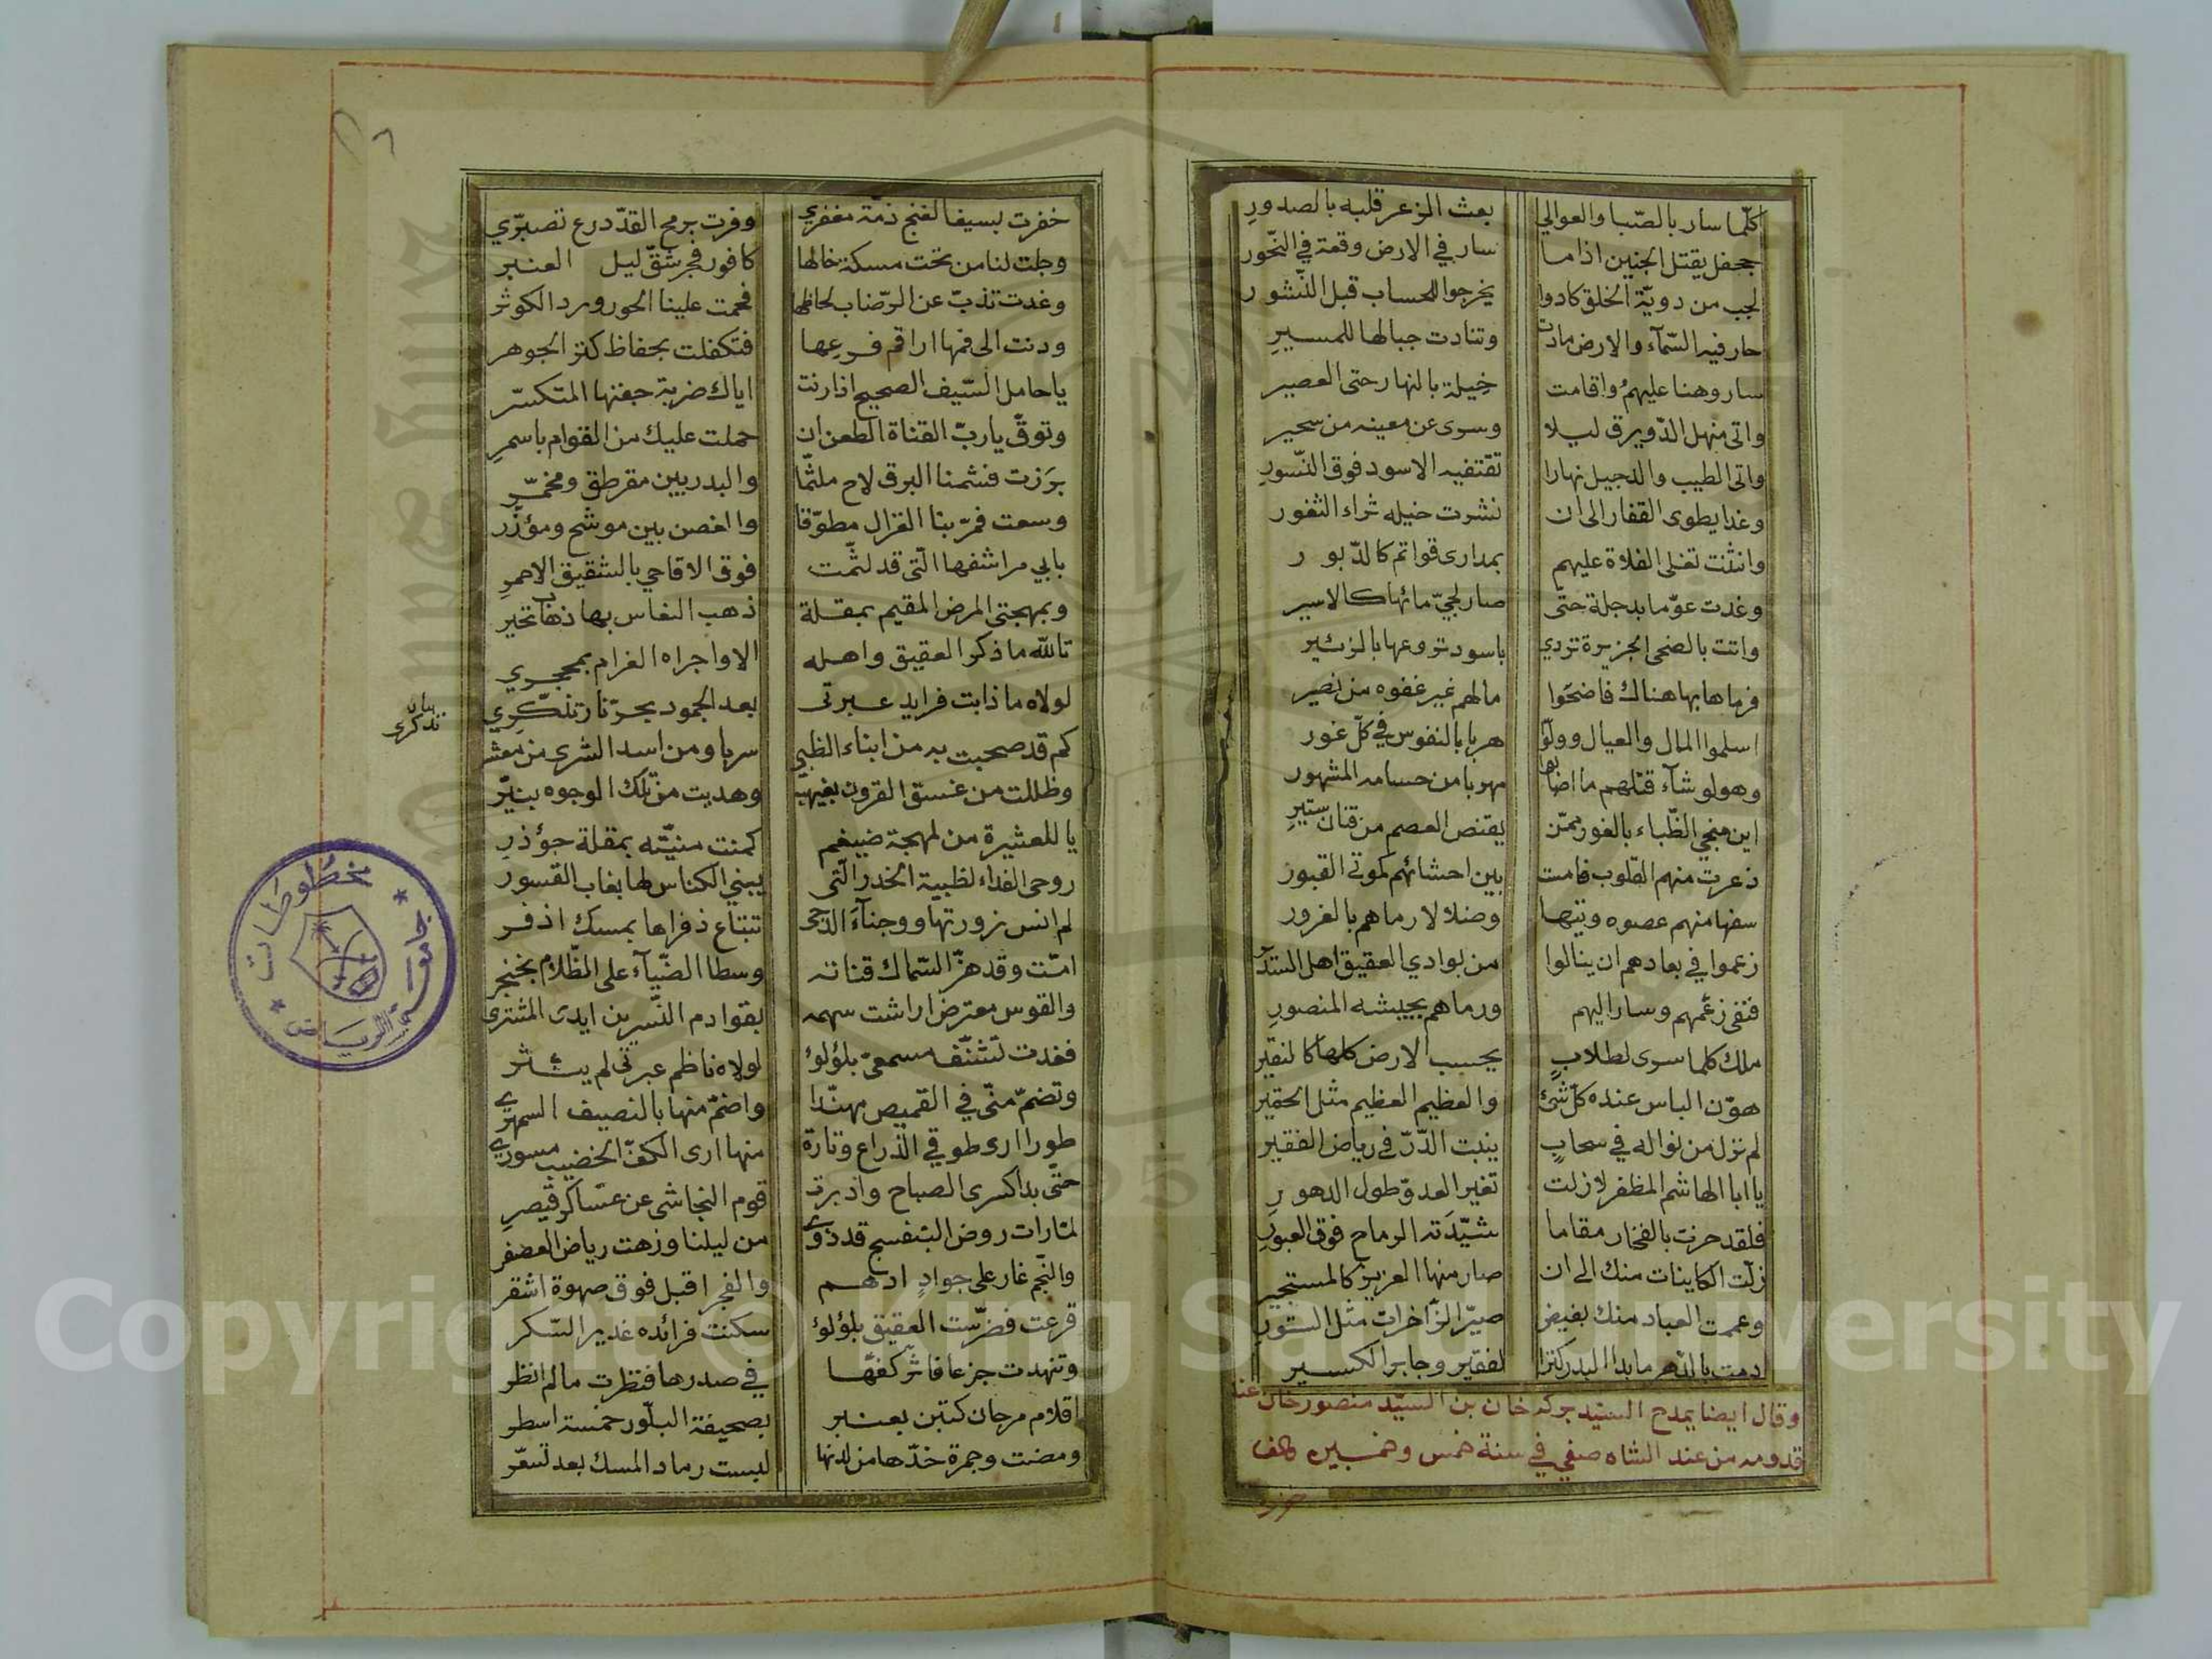 كلّما سار بالصّبا والعوالي بعث الزعر قلبه بالصدورِ
جحفل يقتل الجنين اذا ما سار في الارض وقعة في النّحور
لجب من دويّة الخلق كادوا يخرجوا للحساب قبل النّشور
حار فيه السّمآء والارض مادت وتنادت جبالها للمسيرِ
سار وهنا عليهمُ واقامت خيلة بالنهار حتى العصير
واتى منهل الدّويرق ليلا وسرى عن معينه من سحير
واتى الطيب والدجيل نهارا تقتفيه الاسود فوق النّسورِ
وغدا يطوى القفار الى ان نشرت خيله ثراء الثغور
وانثنت تفلى الفلاة عليهم بمدارى قوائم كالدّبور
وغدت عوّما بدجلة حتّى صار لجيّ مائها كالاسير
واتت بالضحى الجزيرة تردي باسود تروعها بالزئير
فرماها بها هناك فاضحَوا مالهم غير عفوه من نصير
اسلموا المال والعيال وولّوا هربا بالنفوس في كلّ غور
وهو لو شآء قتلهم ما اضابها مهربا من حسامه المشهور
اين منجي الظّباء بالغور ممّن يقتنص العصم من قنان ستيرِ
ذعرت منهم القلوب فامست بين احشائهم كموتى القبور
سفها منهم عصوه وتيها وضلالا رماهم بالغرور
زعموا في بعادهم ان ينالوا من بوادي العقيق اهل السّدير
فنفى زعمهم وسار اليهم ورماهم بجيشه المنصورِ
ملك كلما سرى لطلابٍ يحسب الارض كلها كالنقير
هوّن الباس عنده كلّ شئ والعظيم العظيم مثل الحقير
لم تزل من نواله في سحابٍ ينبت الدّرّ في رياض الفقير
يا ابا الهاشم المظفر لا زلت تغير العدوّ طول الدهورِ
فلقد حزت بالفخار مقاما شيّدَته الرماح فوق العبورِ
زلّت الكاينات منك الى ان صار منها العزيز كالمستجير
وعممت العباد منك بفيض صيّر الزّاخرات مثل الستور
دمت بالدّهر ما بدا البدر كنزا لفقير وجابرا لكسير
وقال ايضا يمدح السيّد بركه خان بن السيّد منصور خان عند
قدومه من عند الشاه صفي في سنة خمس وخمسين والف
خفرت
خفرت بسيف الغنج ذمّة مغفري وفرت برمح القدّ درع تصبّري
وجلت لنا من تحت مسكة خالها كافور فجر شقّ ليل العنبر
وغدت تذبّ عن الرّضاب لحاظها فحمت علينا الحور ورد الكوثر
ودنت الى فمها اراقم فرعِها فتكفلت بحفاظ كنز الجوهر
يا حامل السّيف الصحيح اذا رنت اياك ضربة جفنها المتكسّر
وتوقّ يا ربّ القناة الطعن ان حملت عليك من القوام باسمرِ
بَرَزت فشمنا البرق لاح ملثّما والبدر بين مقرطق ومخمّر
وسعت فمرّ بنا الغزال مطوّقا والغصن بين موشح ومؤزّر
بابي مراشفها الّتى قد لثّمت فوق الاقاحي بالشقيق الاحمرِ
وبمهجتى المرض المقيم بمقلة ذهب النعاس بها ذهاب تحير
تالله ما ذكر العقيق واهله الا واجراه الغرام بمحجري
لولاه ما ذابت فرايد عبرتى بعد الجمود بحرّ نار تذكّري
بنار تذكرى
كم قد صحبت به من ابناء الظبي سربا ومن اسد الشرى من معشر
وظللت من غسق القرون بغيهب وهديت من تلك الوجوه بنيّر
يا للعشيرة من لمهجة ضيغم كمنت منيّته بمقلة جؤذرِ
روحى الفداء لظبية الخدر الّتى يبني الكناس لها بغاب القسور
لم انس زورتها ووجنآءَ الدجى تنباع ذفراها بمسك اذفر
امّت وقد هزّ السّماك قناته وسطا الضّيآء على الظّلام بخنجر
والقوس معترض اراشت سهمه بقوادم النّسرين ايدى المشترى
فغدت تشنّف مسمعىّ بلؤلؤ لولاه ناظم عبرتى لم ينثر
وتضمّ منّى في القميص مهنّدا واضمّ منها بالنصيف السمهرى
طورا ارى طوقي الذّراع وتارة منها ارى الكفّ الخضيب مسورى
حتّى بدا كسرى الصباح وادبرت قوم النجاشى عن عساكر قيصرِ
لمّا رات روض البنفسج قد ذوى من ليلنا وزهت رياض العصفر
والنّجم غار على جوادٍ ادهم والفجر اقبل فوق صهوة اشقر
قرعت فضرّست العقيق بلؤلؤ سكنت فرائده غدير السّكر
وتنهدت جزعا فاثّر كفهّا في صدرها فنظرت مالم انظر
اقلام مرجان كتبن بعنبر بصحيفة البلّور خمسة اسطر
ومضت وجمرة خدّها من لدنها لبست رماد المسك بعد تسعّر
مخطوطات
جامعة الرياض
Copyright © King Saud University